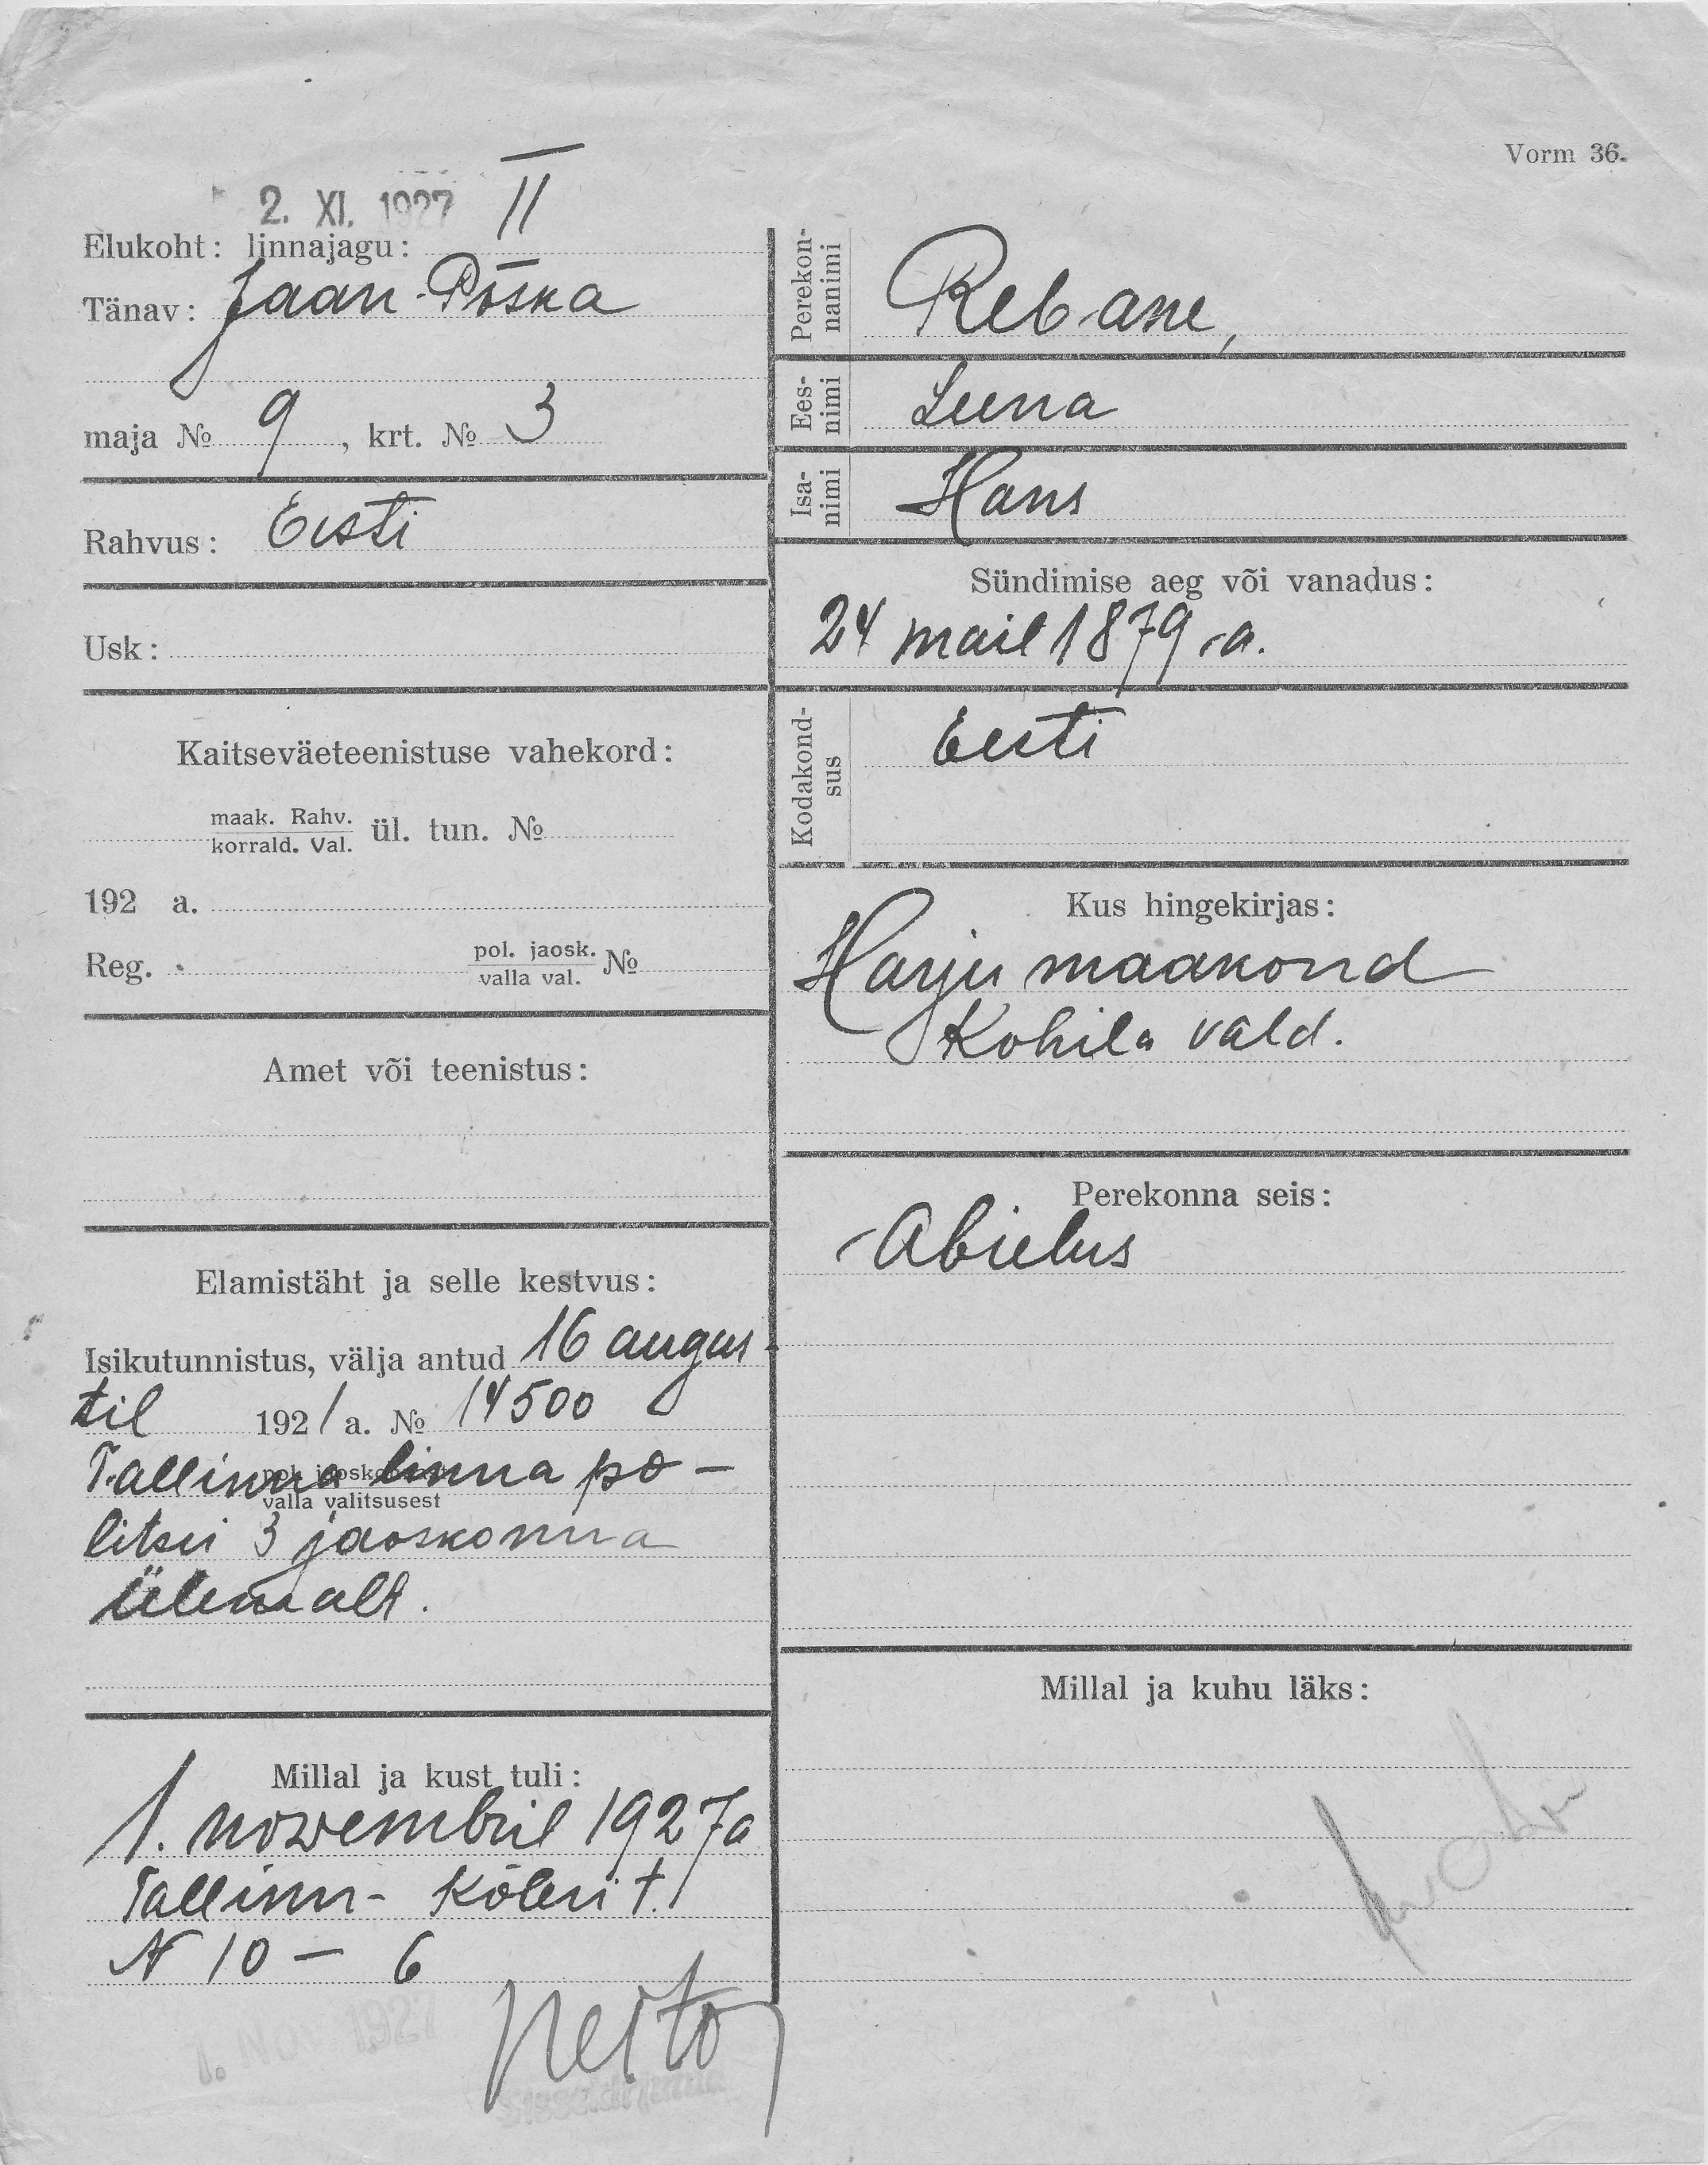 Vorm 36.
2. XI. 1927 II
Elukoht: linnajagu:
Tänav: Jaan-Poska
maja № 9, krt. № 3
Rahvus: Eesti
Usk:
Kaitseväeteenistuse vahekord:
maak. Rahv.
korrald. Val. ül. tun. №
192 a.
Reg. pol. jaosk. №
valla val.
Amet või teenistus:
Elamistäht ja selle kestvus:
Isikutunnistus, välja antud 16 augus-
til 1921 a. № 14500
Tallinna linna po-
valla valitsusest
litsei 3 jaoskonna
ülemalt.
Millal ja kust tuli:
1. novembril 1927 a
Tallinn- Köleri t.
N 10 - 6
1. NOV. 1927
Perekon-
nanimi Rebane,
Ees-
nimi Leena
Isa-
nimi Hans
Sündimise aeg või vanadus:
24 mail 1879.a.
Kodakond-
sus Eesti
Kus hingekirjas:
Harju maakond
Kohila vald.
Perekonna seis:
Abielus
Millal ja kuhu läks: